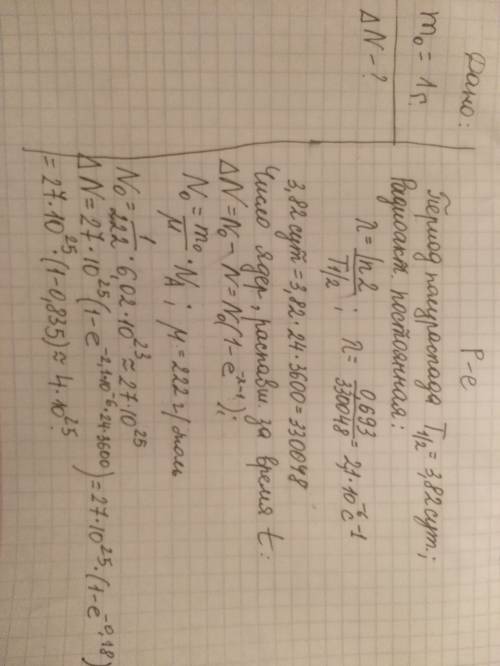 Дано:
m₀ = 1г.
ΔN - ?
Р-е
Период полураспада T₁/₂ = 3,82 сут.;
Радиоакт. постоянная:
λ = ln 2 / T₁/₂ ; λ = 0,693 / 330048 = 2,1·10⁻⁶ с⁻¹
3,82 сут = 3,82·24·3600 = 330048
Число ядер, распавш. за время t:
ΔN = N₀ - N = N₀(1 - e⁻λᵗ);
N₀ = m₀/μ · N_A ; μ = 222 г/моль
N₀ = 1/222 · 6,02·10²³ ≈ 27·10²⁵
ΔN = 27·10²⁵(1 - e^(-2,1·10⁻⁶·24·3600)) = 27·10²⁵·(1 - e^(-0,18))
= 27·10²⁵·(1 - 0,835) ≈ 4·10²⁵